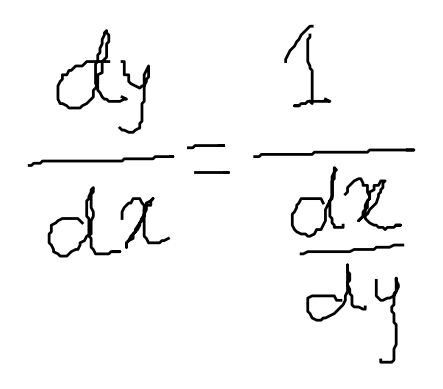 \frac{dy}{dx} = \frac{1}{\frac{dx}{dy}}